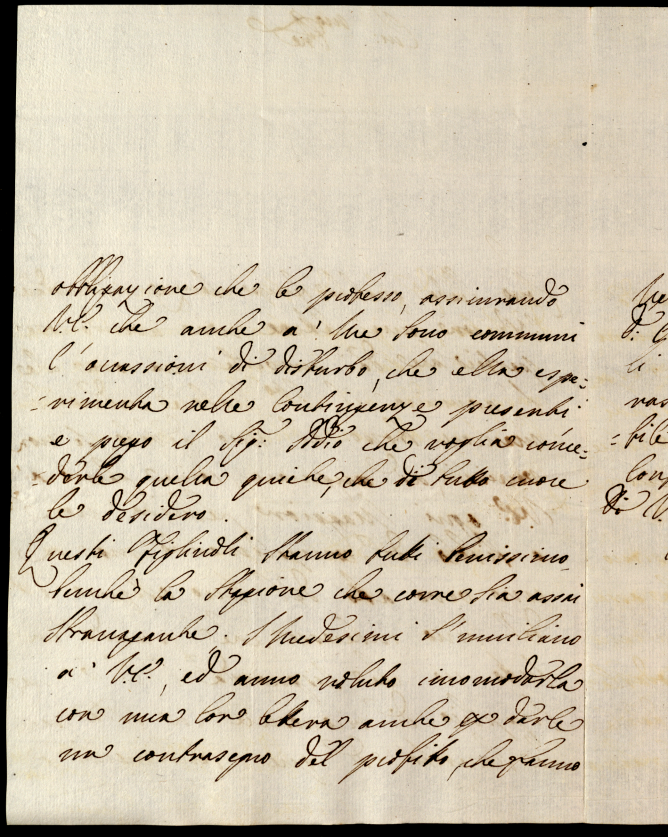 obbligazione che le professo, assicurando
V.S. che anche a' me sono communi
l'ocassioni di disturbo, che ella espe:
:rimenta nelle Contingenze presenti
e prego il Sig: Iddio che voglia conce:
derle quella quiete, che di tutto cuore
le desidero.
Questi Figliuoli stanno tutti benissimo
benche la Stagione che corre sia assai
stravagante. I medesimi s'inviliano
a' V.S., ed anno voluto incomodarla
con una lor lettera anche p darle
un contrasegno del profitto, che fanno